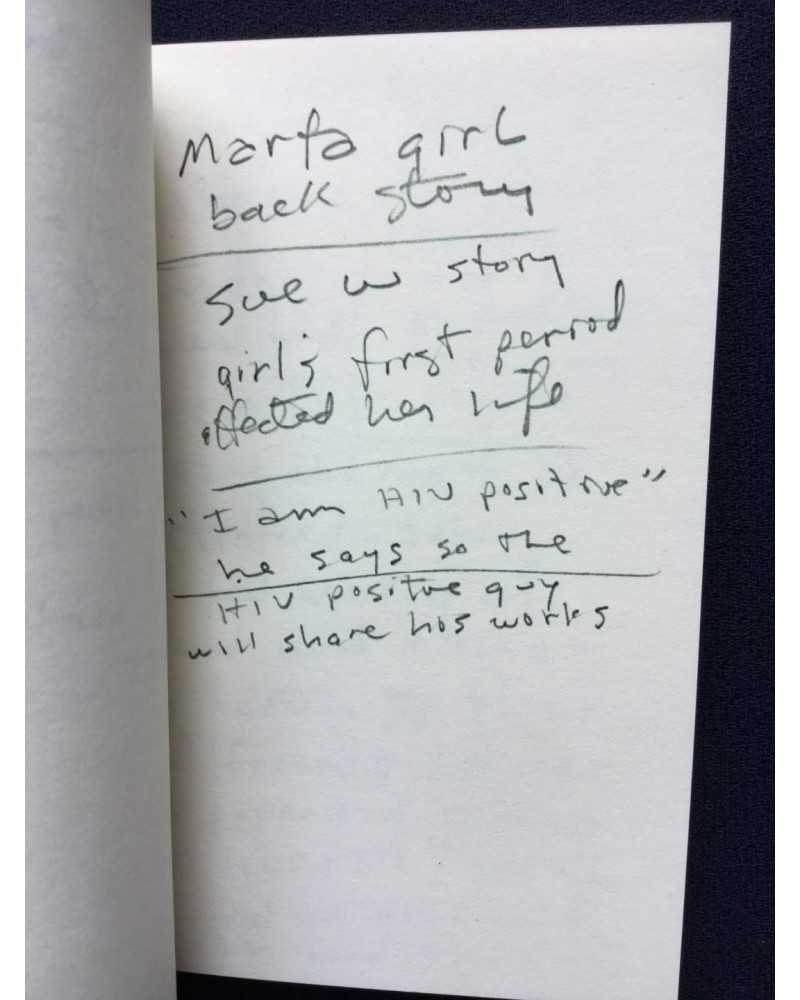 Marfa girl
back story
Sue w story
girl's first period
effected her life
"I am HIV positive"
he says so the
HIV positive guy
will share his works